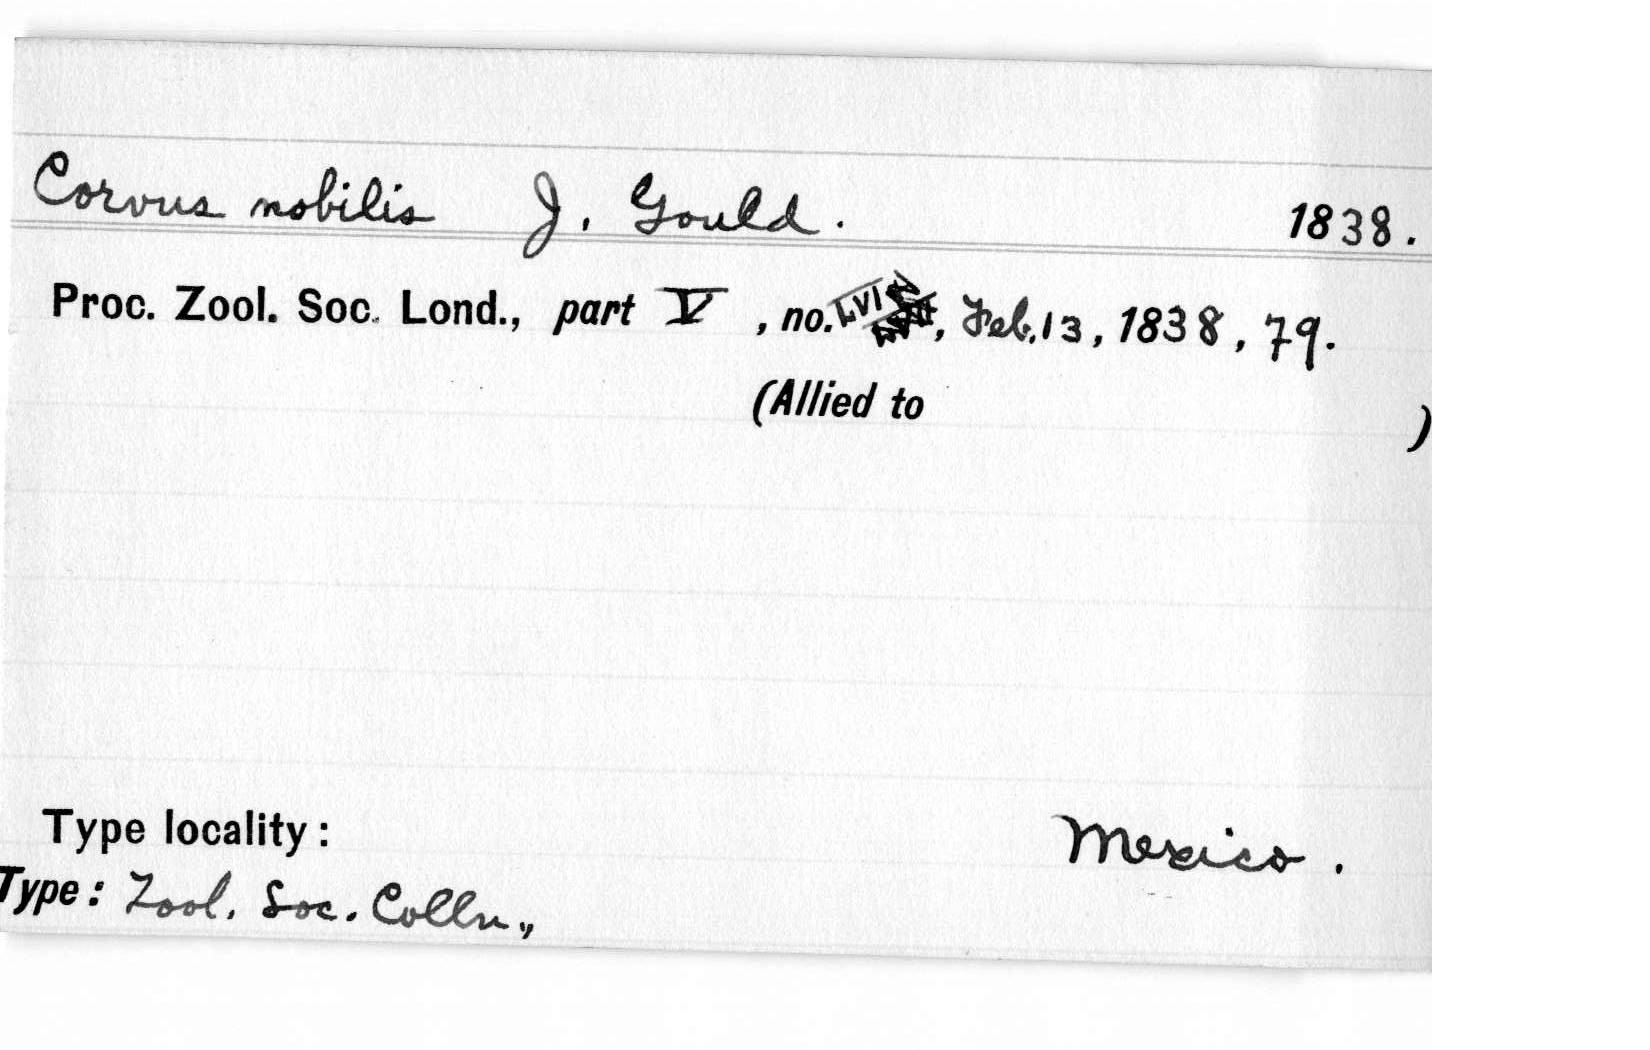 Corvus nobilis J. Gould. 1838.
Proc. Zool. Soc. Lond., part V , no. , Feb. 13, 1838, 79.
(Allied to )
Type locality: Mexico.
Type: Zool. Soc. Colln.,